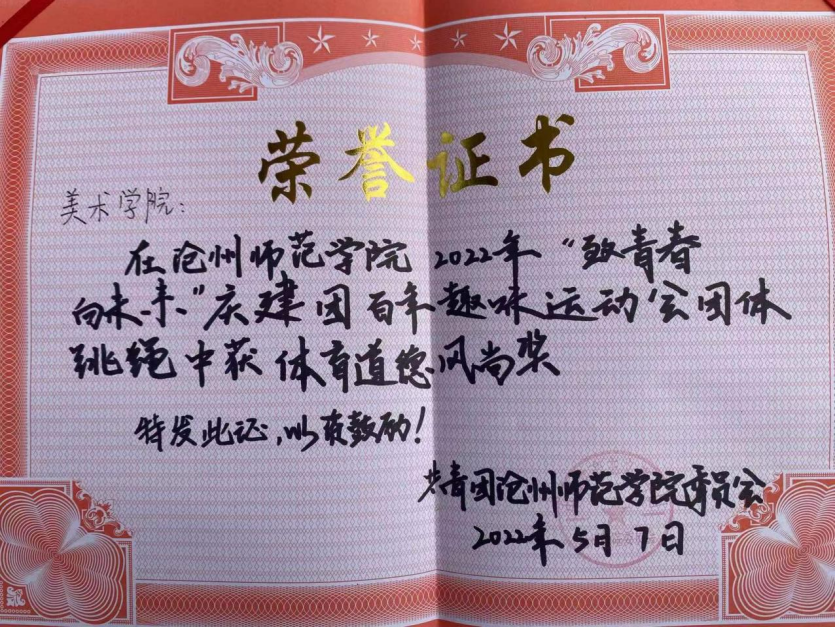 荣誉证书
美术学院：
在沧州师范学院 2022年“致青春
向未来”庆建团百年趣味运动会团体
跳绳中获体育道德风尚奖
特发此证，以资鼓励！
共青团沧州师范学院委员会
2022年5月7日